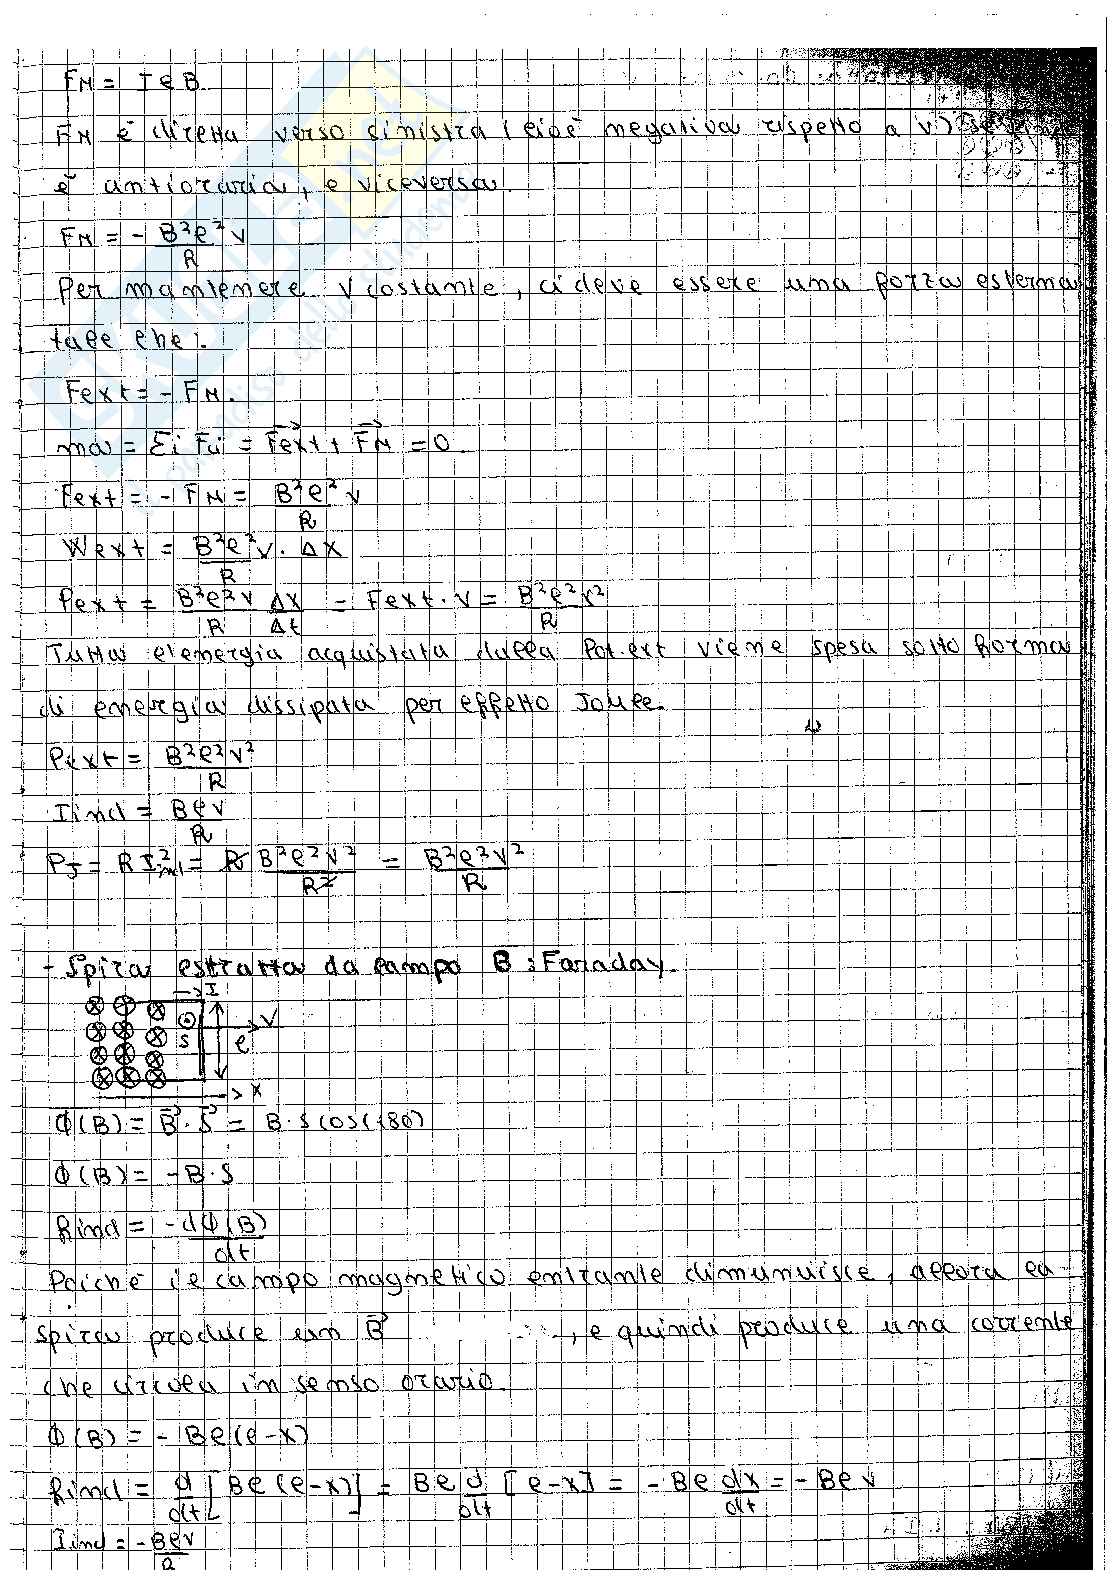 FM = I l B
FM è diretta verso sinistra (cioè negativa rispetto a v) se
è antioraria, e viceversa.
FM = - B²l²v / R
Per mantenere v costante, ci deve essere una forza esterna
tale che:
Fext = - FM.
ma = Σi Fi = Fext + FM = 0.
Fext = - FM = B²l²v / R
Wext = B²l²v / R · Δx
Pext = B²l²v / R Δx / Δt = Fext · v = B²l²v² / R
Tutta l'energia acquistata dalla Pot.ext viene spesa sotto forma
di energia dissipata per effetto Joule.
Pext = B²l²v² / R
Iind = Blv / R
PJ = R I²ind = R B²l²v² / R² = B²l²v² / R
- Spira estratta da campo B: Faraday.
I
V
S
l
x
Φ(B) = B · S = B · S cos(180)
Φ(B) = - B · S
find = - dΦ(B) / dt
Poiché il campo magnetico entrante dimunuisce, allora la
spira produce un B , e quindi produce una corrente
che circola in senso orario.
Φ(B) = - Bl(l-x)
find = d/dt [Bl(l-x)] = Bl d/dt [l-x] = - Bl dx/dt = - Blv
Iind = - Blv / R